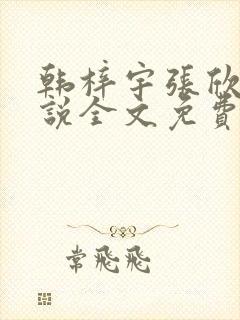 韩梓宇張欣
說全文免費
常飛飛